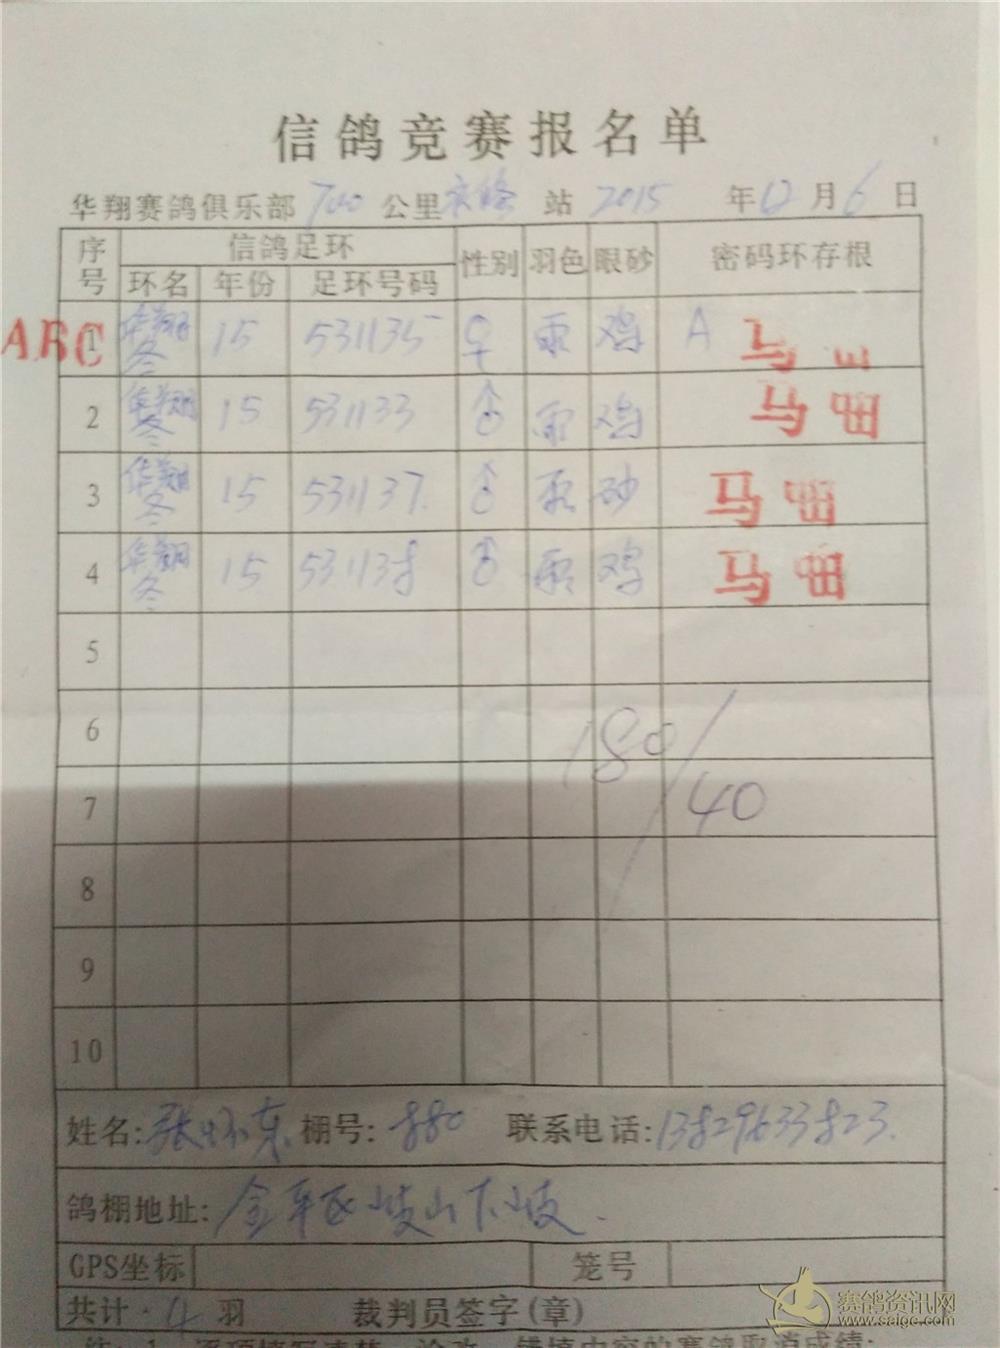 信鸽竞赛报名单
华翔赛鸽俱乐部 700 公里 站 2015 年 12 月 6 日
序号 信鸽足环 性别 羽色 眼砂 密码环存根
环名 年份 足环号码
ABC
1 华翔冬 15 531135 ♀ 雨 鸡 A 马
2 华翔冬 15 531133 ♂ 雨 鸡 马
3 华翔冬 15 531137. ♂ 雨 砂 马
4 华翔冬 15 531138 ♂ 雨 鸡 马
5
6
180/40
7
8
9
10
姓名: 张怀东 棚号: 880 联系电话: 13829633823.
鸽棚地址: 金平区岐山下岐.
GPS坐标 笼号
共计·4 羽 裁判员签字(章)
赛鸽资讯网
www.saige.com